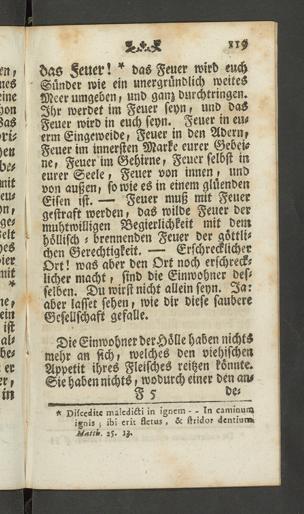 119
das Feuer! * das Feuer wird euch
Sünder wie ein unergründlich weites
Meer umgeben, und ganz durchtringen.
Ihr werdet im Feuer seyn, und das
Feuer wird in euch seyn. Feuer in eu-
erm Eingeweide, Feuer in den Adern,
Feuer im innersten Marke eurer Gebei-
ne, Feuer im Gehirne, Feuer selbst in
eurer Seele, Feuer von innen, und
von außen, so wie es in einem glüenden
Eisen ist. — Feuer muß mit Feuer
gestraft werden, das wilde Feuer der
muhtwilligen Begierlichkeit mit dem
höllisch-brennenden Feuer der göttli-
chen Gerechtigkeit. — Erschrecklicher
Ort! was aber den Ort noch erschreck-
licher macht, sind die Einwohner des-
selben. Du wirst nicht allein seyn. Ja:
aber lasset sehen, wie dir diese saubere
Gesellschaft gefalle.
Die Einwohner der Hölle haben nichts
mehr an sich, welches den viehischen
Appetit ihres Fleisches reitzen könnte.
Sie haben nichts, wodurch einer den an-
F 5 de-
* Discedite maledicti in ignem - - In caminum
ignis; ibi erit fletus, & stridor dentium
Matth. 25. 13.